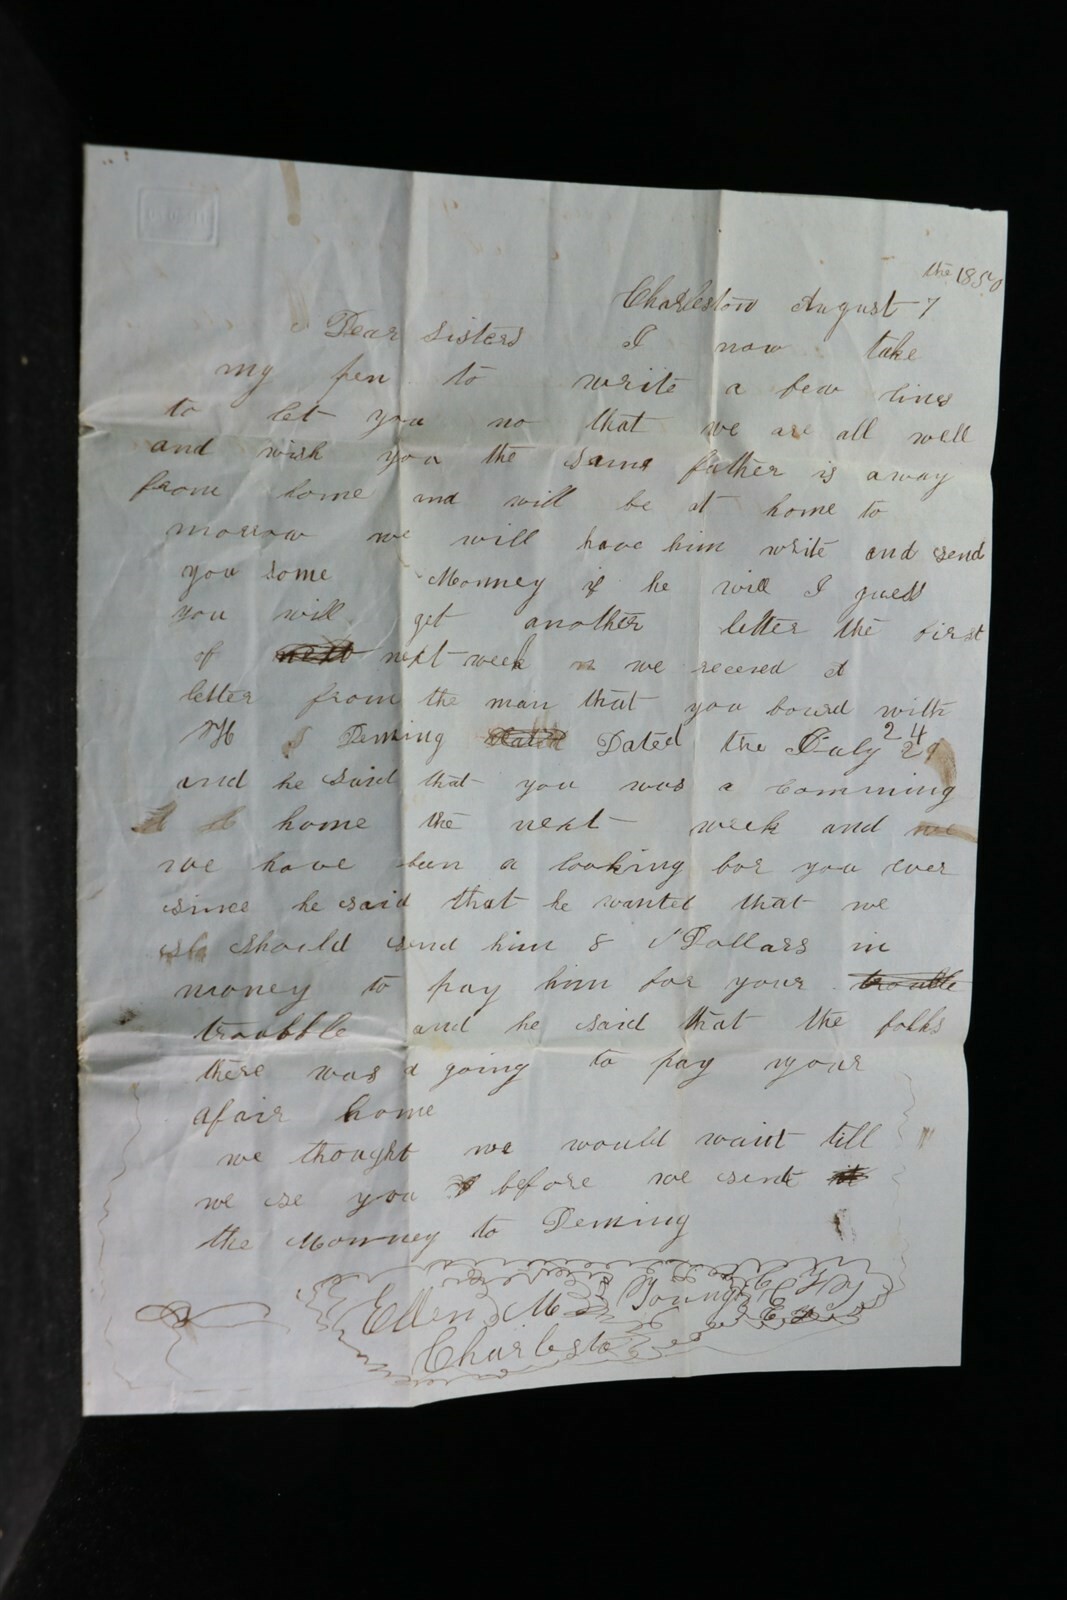 the 1850
Charleston August 7
Dear Sisters I now take
my pen to write a few lines
to let you no that we are all well
and wish you the same father is away
from home and will be at home to
morrow we will have him write and send
you some Monney if he will I guess
you will get another letter the first
of next next week we receved a
letter from the man that you board with
Deming Dated the July 24
and he said that you was a comming
home the next week and we
we have ben a looking for you ever
since he said that he wanted that we
should send him 8 Dollars in
money to pay him for your trouble
troubble and he said that the folks
there was a going to pay your
afair home
we thought we would waint till
we se you before we sent it
the Monney to Deming
Ellen M Young
Charlesto